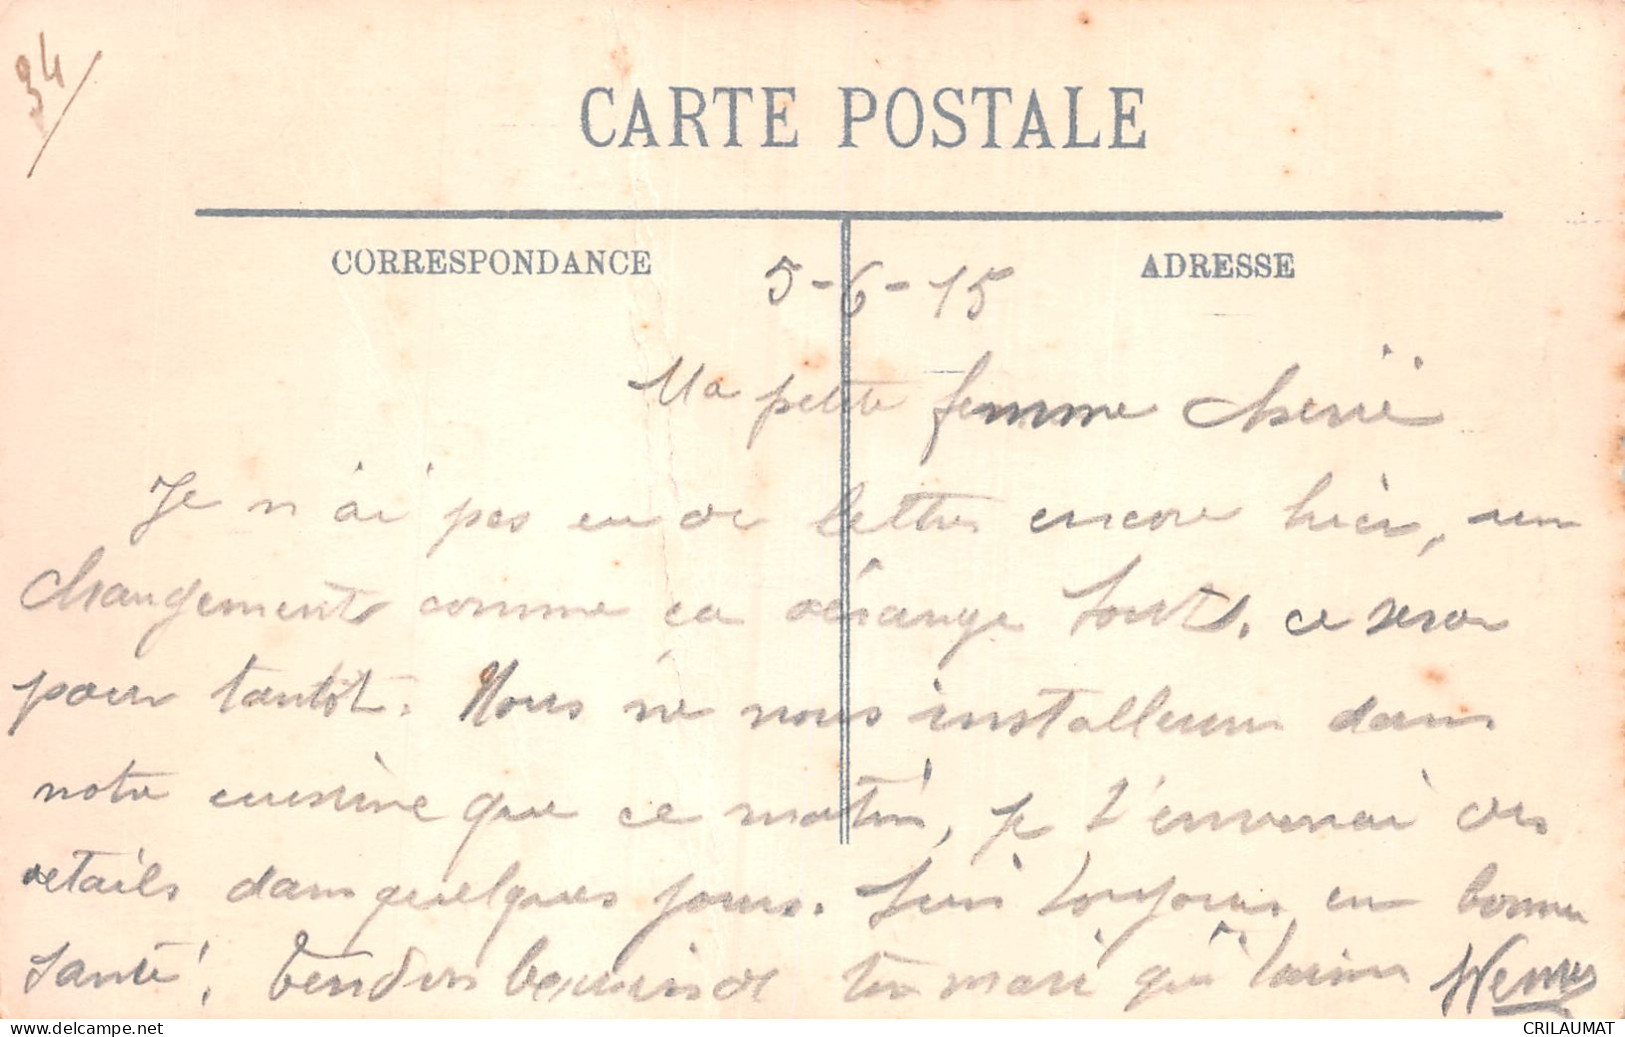 34/
CARTE POSTALE
CORRESPONDANCE
ADRESSE
5-6-15
Ma petite femme chérie
Je n'ai pas eu de lettres encore hier, un
changement comme ça dérange tout. ce sera
pour tantôt. Nous ne nous installerons dans
notre cuisine que ce matin, je t'enverrai des
details dans quelques jours. Suis toujours en bonne
santé. Tendres baisers de ton mari qui t'aime
CRILAUMAT